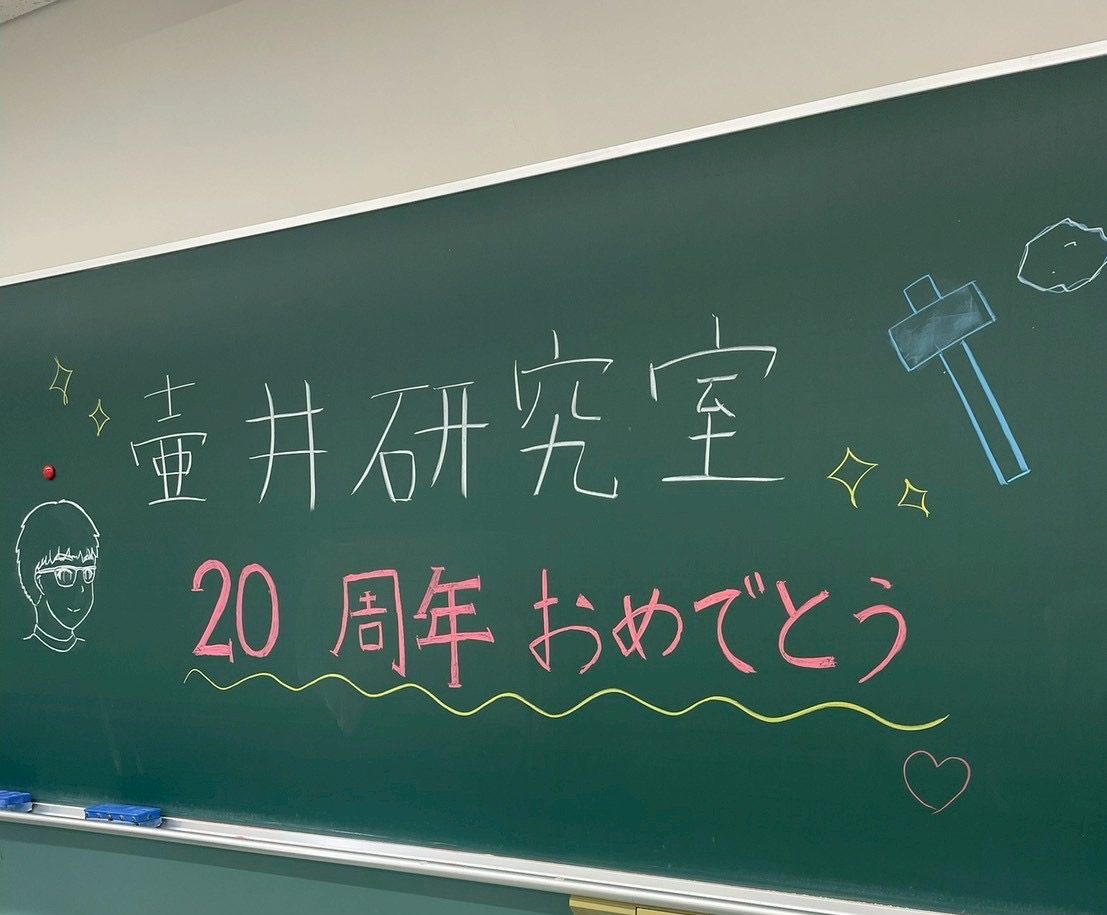 壷井研究室
20 周年 おめでとう